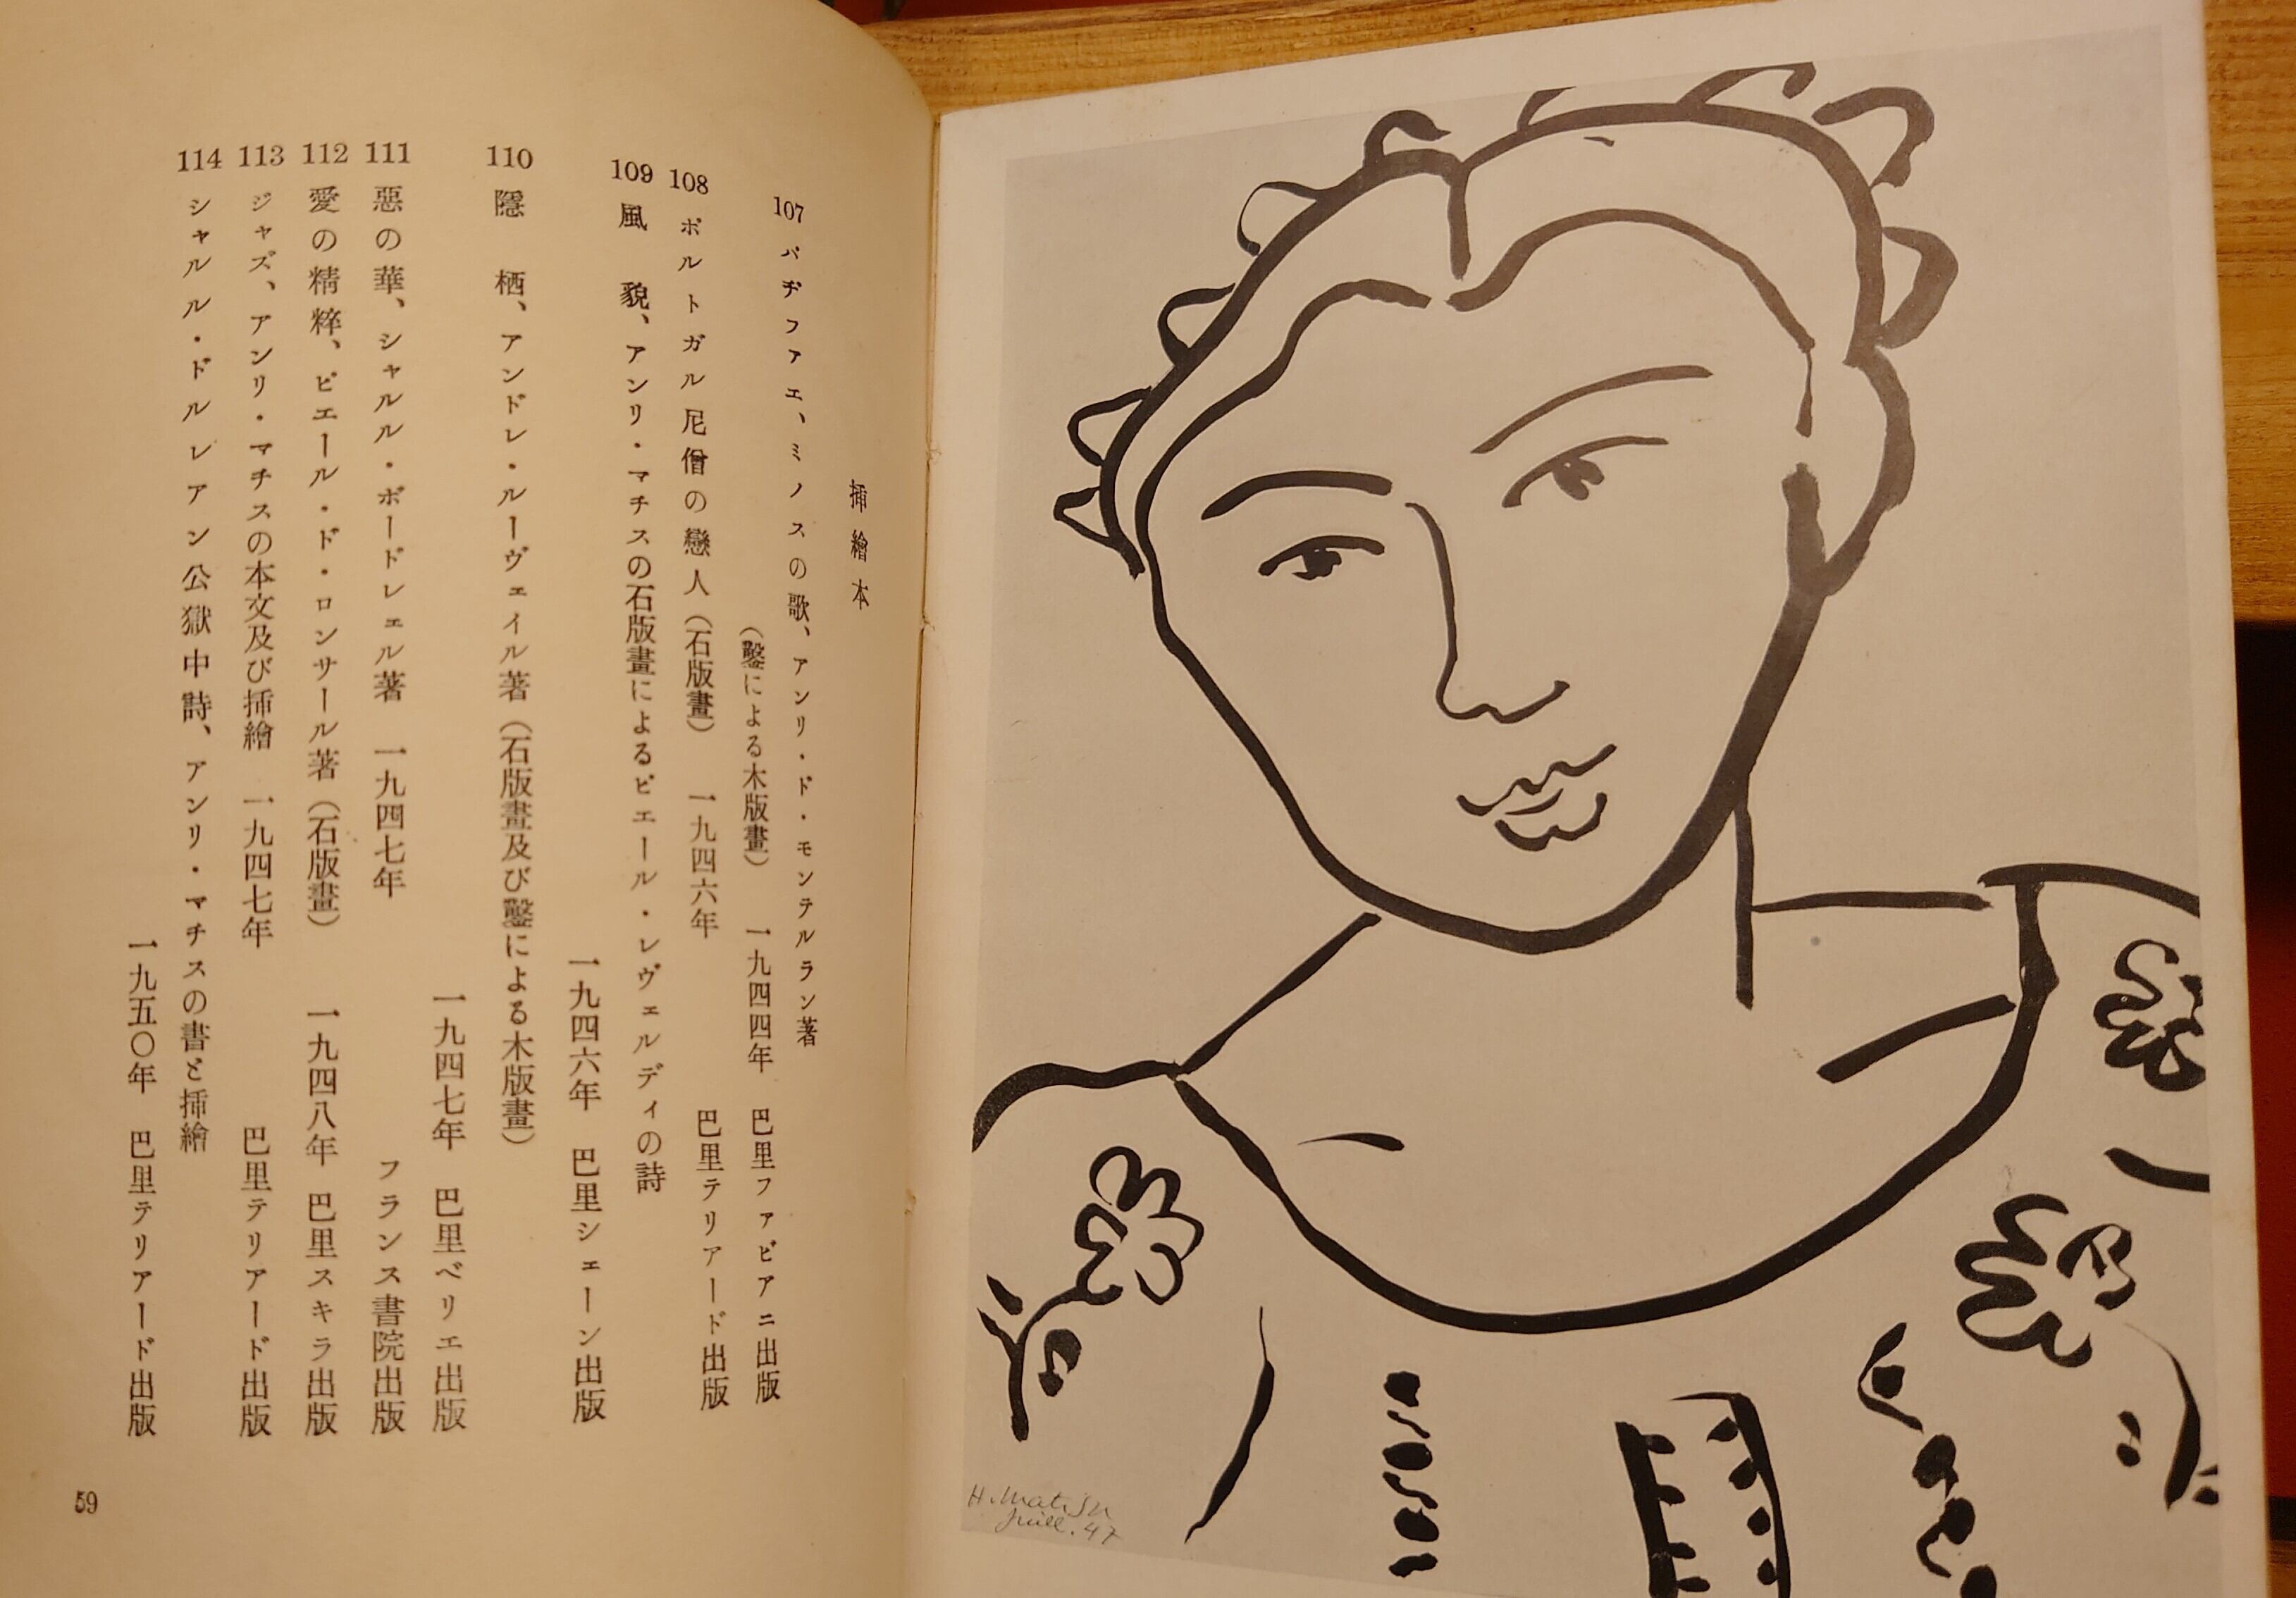 挿繪本
107 パチファエ、ミノスの歌、アンリ・ド・モンテルラン著
(鑿による木版畫) 一九四四年 巴里ファビアニ出版
108 ポルトガル尼僧の戀人(石版畫) 一九四六年 巴里テリアード出版
109 風貌、アンリ・マチスの石版畫によるピエール・レヴェルディの詩
一九四六年 巴里シェーン出版
110 隱栖、アンドレ・ルーヴェイル著(石版畫及び鑿による木版畫)
一九四七年 巴里ベリエ出版
111 惡の華、シャルル・ボードレェル著 一九四七年 フランス書院出版
112 愛の精粹、ピエール・ド・ロンサール著(石版畫) 一九四八年 巴里スキラ出版
113 ジャズ、アンリ・マチスの本文及び挿繪 一九四七年 巴里テリアード出版
114 シャルル・ドルレアン公獄中詩、アンリ・マチスの書と挿繪
一九五〇年 巴里テリアード出版
59
H. Matisse
Juill. 47